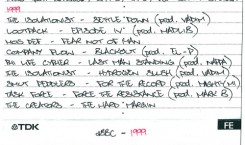 1999
THE ISOLATIONIST - SETTLE DOWN (prod. VADIM)
LOOTPACK - EPISODE IV' (prod. MADLIB)
MOS DEF - FEAR NOT OF MAN
COMPANY FLOW - BLACKOUT (prod. EL-P)
THE ISOLATIONIST - HYDROGEN SLUSH (prod. VADIM)
SMUT PEDDLERS - FOR THE RECORD (prod. MIGHTY MI)
TASK FORCE - FORCE THE RESISTANCE (prod. MARK B)
THE CREATORS - THE HARD MARGIN
TDK FE
- 1999